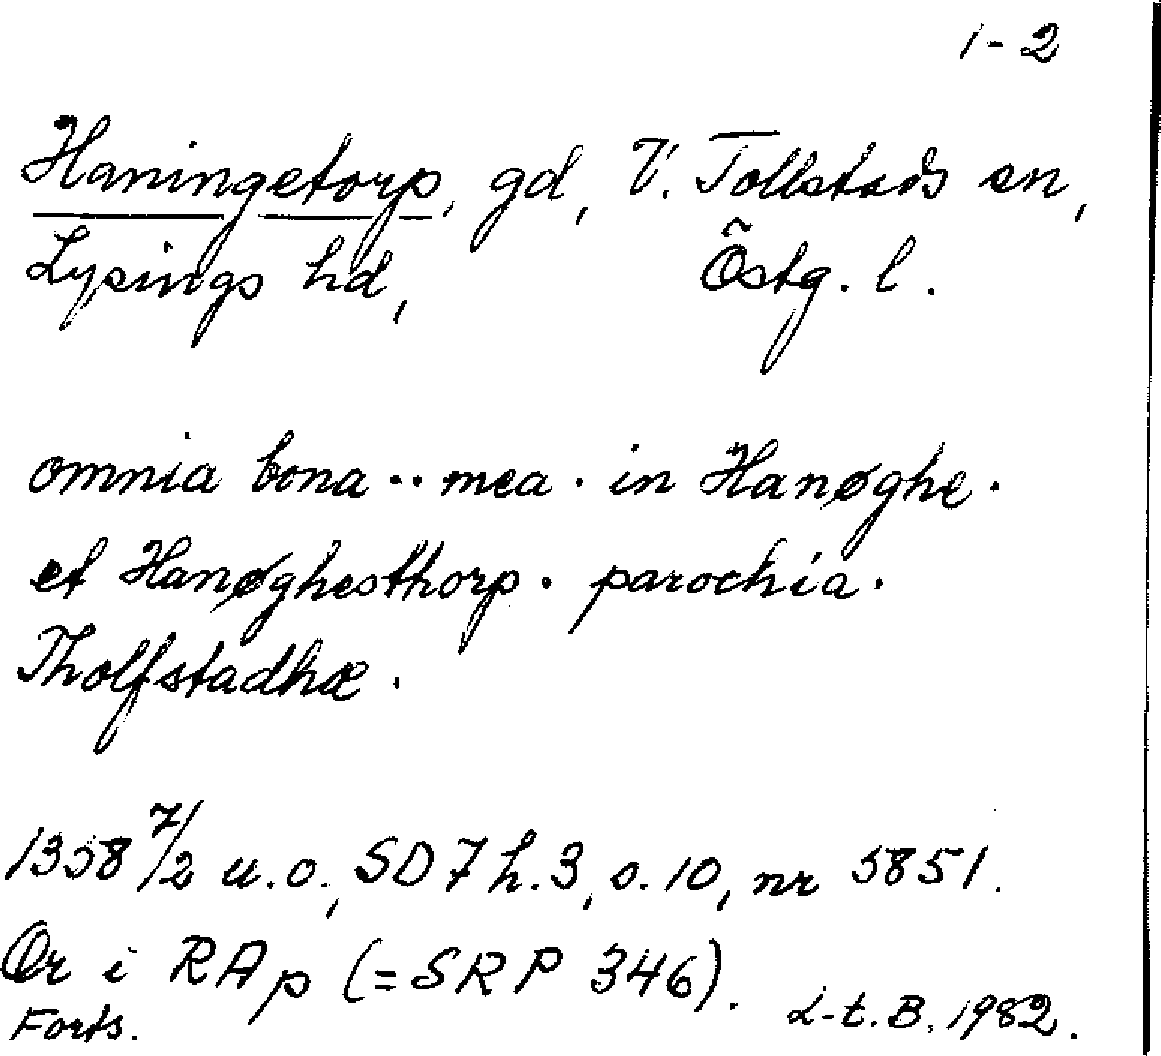 1-2
Haningetorp, gd, V. Tollstads sn,
Lysings hd, Östg. l.
omnia bona .. mea . in Hanøghe .
et Hanøghesthorp . parochia .
Tholfstadhæ .
1358 7/2 u.o., SD 7 h. 3, s. 10, nr 5851.
Or i RAp (= SRP 346). L-t. B. 1982.
Forts.